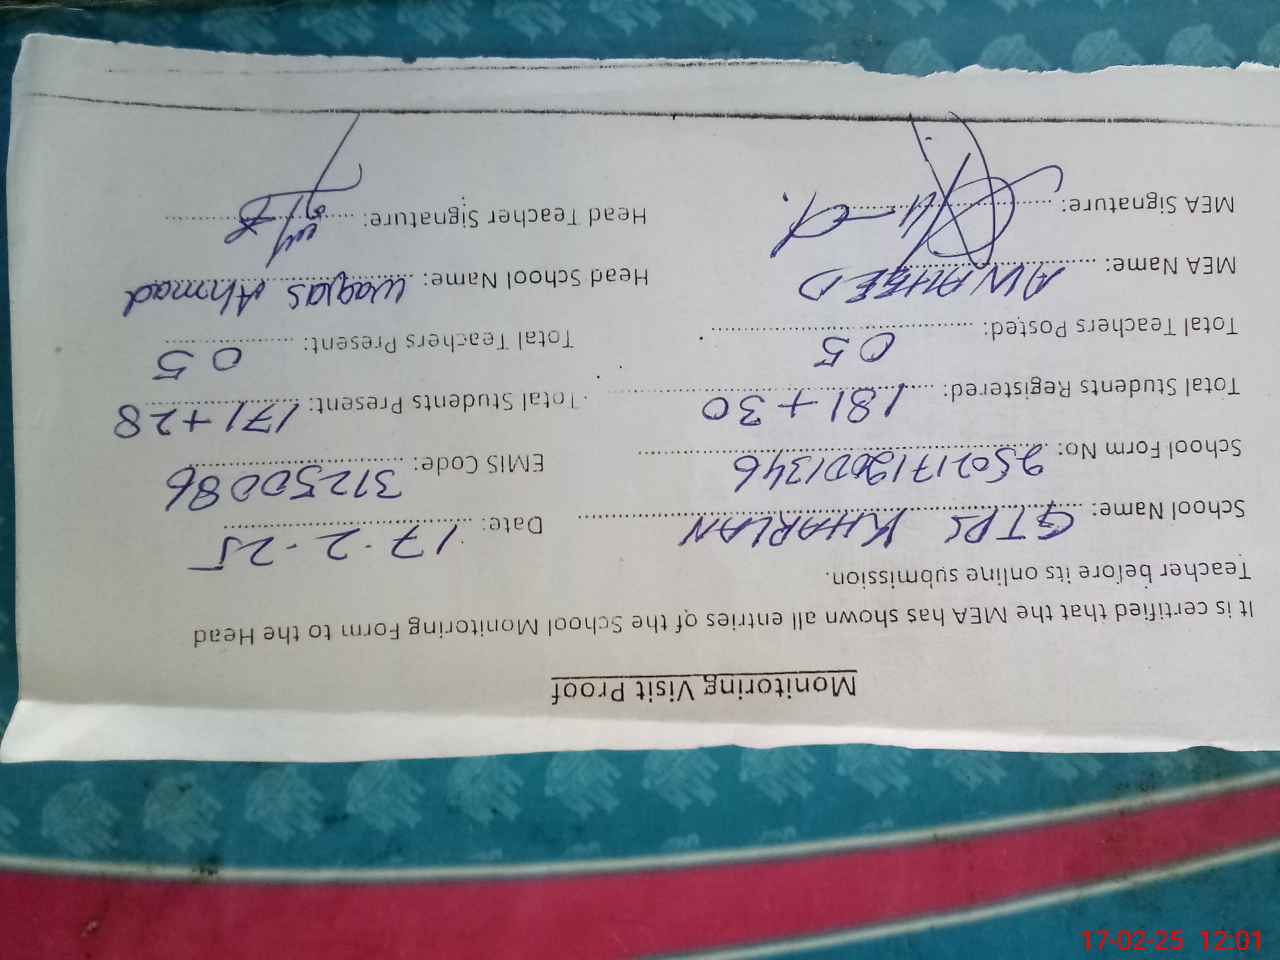 Monitoring Visit Proof
It is certified that the MEA has shown all entries of the School Monitoring Form to the Head
Teacher before its online submission.
School Name: GTPS KHARLAN Date: 17-2-25
School Form No: EMIS Code: 31250086
Total Students Registered: 181+30 Total Students Present: 171+28
Total Teachers Posted: 05 Total Teachers Present: 05
MEA Name: Head School Name: Waqas Ahmad
MEA Signature: Head Teacher Signature:
17-02-25 12:01